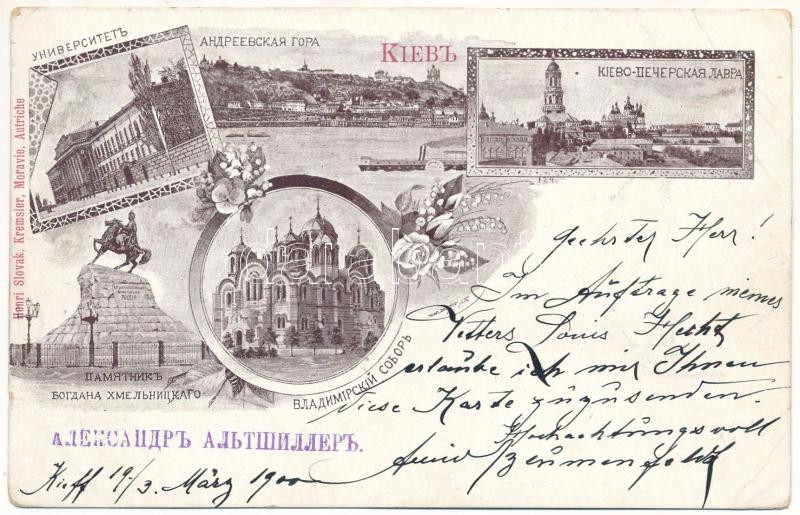 УНИВЕРСИТЕТЪ
АНДРЕЕВСКАЯ ГОРА
КІЕВЪ
КІЕВО-ПЕЧЕРСКАЯ ЛАВРА
Henri Slovak, Kremsier, Moravie, Autriche
ПАМЯТНИКЪ
БОГДАНА ХМЕЛЬНИЦКАГО
ВЛАДИМІРСКІЙ СОБОРЪ
Geehrter Herr!
Im Auftrage meines
Vetters Louis Hecht
erlaube ich mir Ihnen
diese Karte zuzusenden.
Hochachtungsvoll
АЛЕКСАНДРЪ АЛЬТШИЛЛЕРЪ.
Kieff 19/3. März 1900